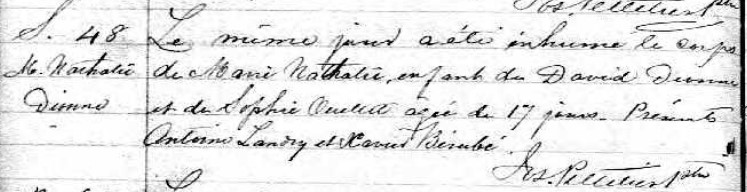 Jos. Pelletier Ptre
S. 48
M. Nathalie
Dionne
Le même jour a été inhumé le corps
de Marie Nathalie, enfant de David Dionne
et de Sophie Ouellet agée de 17 jours. Présents
Antoine Landry et Xavier Bérubé.
Jos. Pelletier Ptre